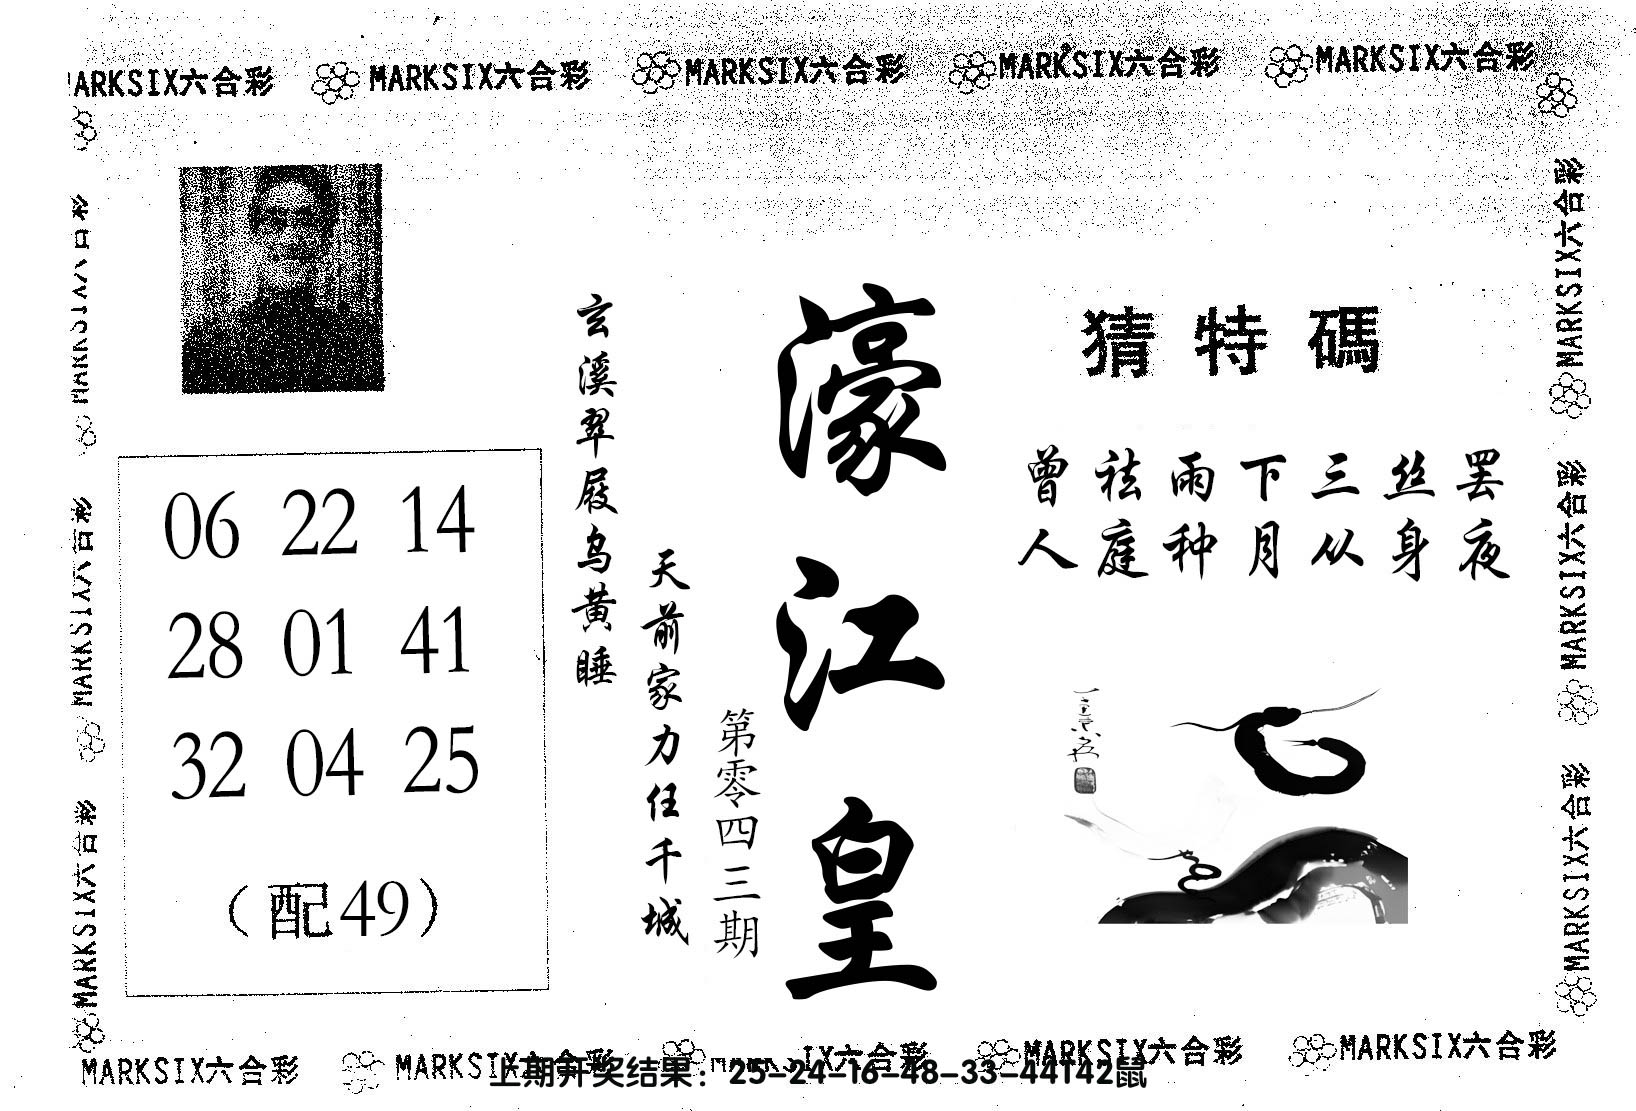 MARKSIX六合彩 MARKSIX六合彩 MARKSIX六合彩 MARKSIX六合彩 MARKSIX六合彩
猜特碼
曾祛雨下三丝罢
人庭种月从身夜
濠江皇
第零四三期
天前家力任千城
玄溪翠屐乌黄睡
06 22 14
28 01 41
32 04 25
（配49）
MARKSIX六合彩 MARKSIX六合彩 MARKSIX六合彩
MARKSIX六合彩 MARKSIX六合彩 MARKSIX六合彩
MARKSIX六合彩 MARKSIX六合彩 IX六合彩 MARKSIX六合彩 MARKSIX六合彩
上期开奖结果：25-24-16-48-33-44T42鼠